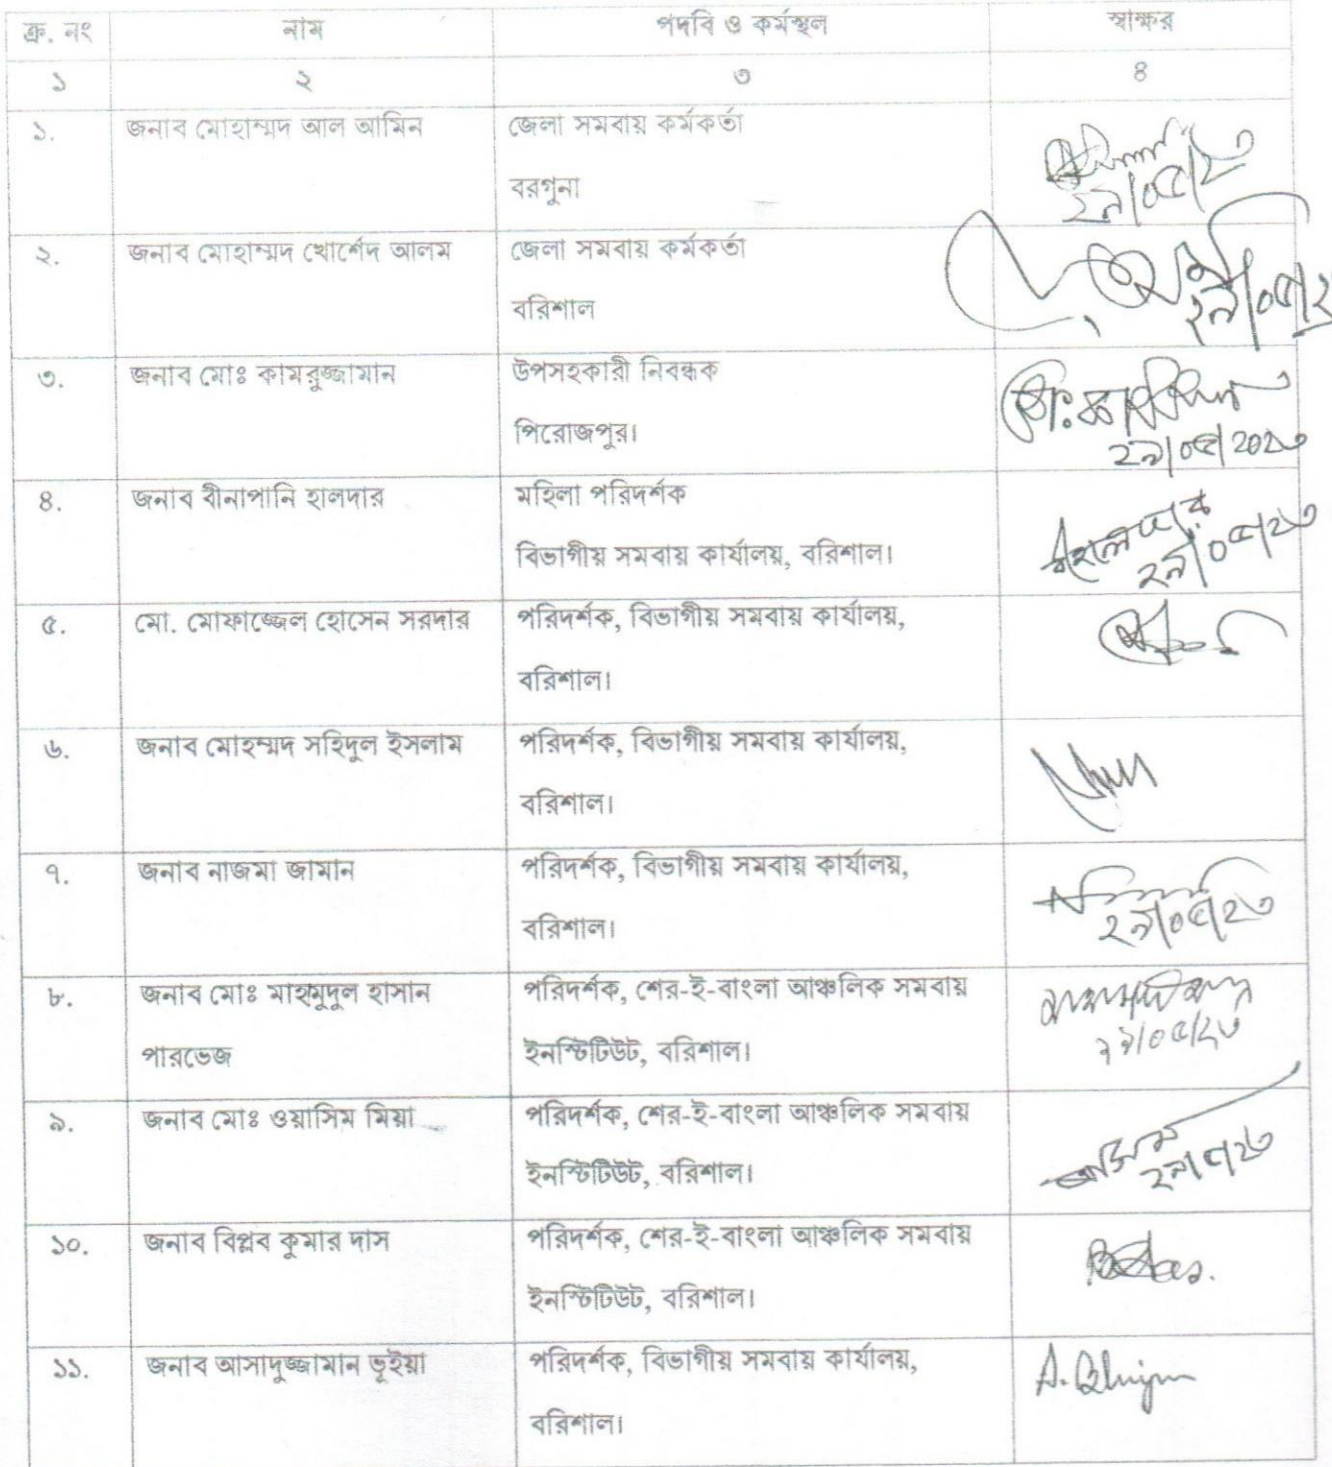 ক্র. নং নাম পদবি ও কর্মস্থল স্বাক্ষর
১ ২ ৩ ৪
১. জনাব মোহাম্মদ আল আমিন জেলা সমবায় কর্মকর্তা
বরগুনা
২৯/০৫/২৩
২. জনাব মোহাম্মদ খোর্শেদ আলম জেলা সমবায় কর্মকর্তা
বরিশাল
২৯/০৫/২
৩. জনাব মোঃ কামরুজ্জামান উপসহকারী নিবন্ধক
পিরোজপুর।
২৯/০৫/2023
৪. জনাব বীনাপানি হালদার মহিলা পরিদর্শক
বিভাগীয় সমবায় কার্যালয়, বরিশাল।
হালদার
২৯/০৫/২৩
৫. মো. মোফাজ্জেল হোসেন সরদার পরিদর্শক, বিভাগীয় সমবায় কার্যালয়,
বরিশাল।
৬. জনাব মোহম্মদ সহিদুল ইসলাম পরিদর্শক, বিভাগীয় সমবায় কার্যালয়,
বরিশাল।
৭. জনাব নাজমা জামান পরিদর্শক, বিভাগীয় সমবায় কার্যালয়,
বরিশাল।
২৯/০৫/২৩
৮. জনাব মোঃ মাহমুদুল হাসান পরিদর্শক, শের-ই-বাংলা আঞ্চলিক সমবায়
পারভেজ ইনস্টিটিউট, বরিশাল।
২৯/০৫/২৩
৯. জনাব মোঃ ওয়াসিম মিয়া পরিদর্শক, শের-ই-বাংলা আঞ্চলিক সমবায়
ইনস্টিটিউট, বরিশাল।
২৯/৫/২৩
১০. জনাব বিপ্লব কুমার দাস পরিদর্শক, শের-ই-বাংলা আঞ্চলিক সমবায়
ইনস্টিটিউট, বরিশাল।
১১. জনাব আসাদুজ্জামান ভূইয়া পরিদর্শক, বিভাগীয় সমবায় কার্যালয়, A. Bhuiyan
বরিশাল।